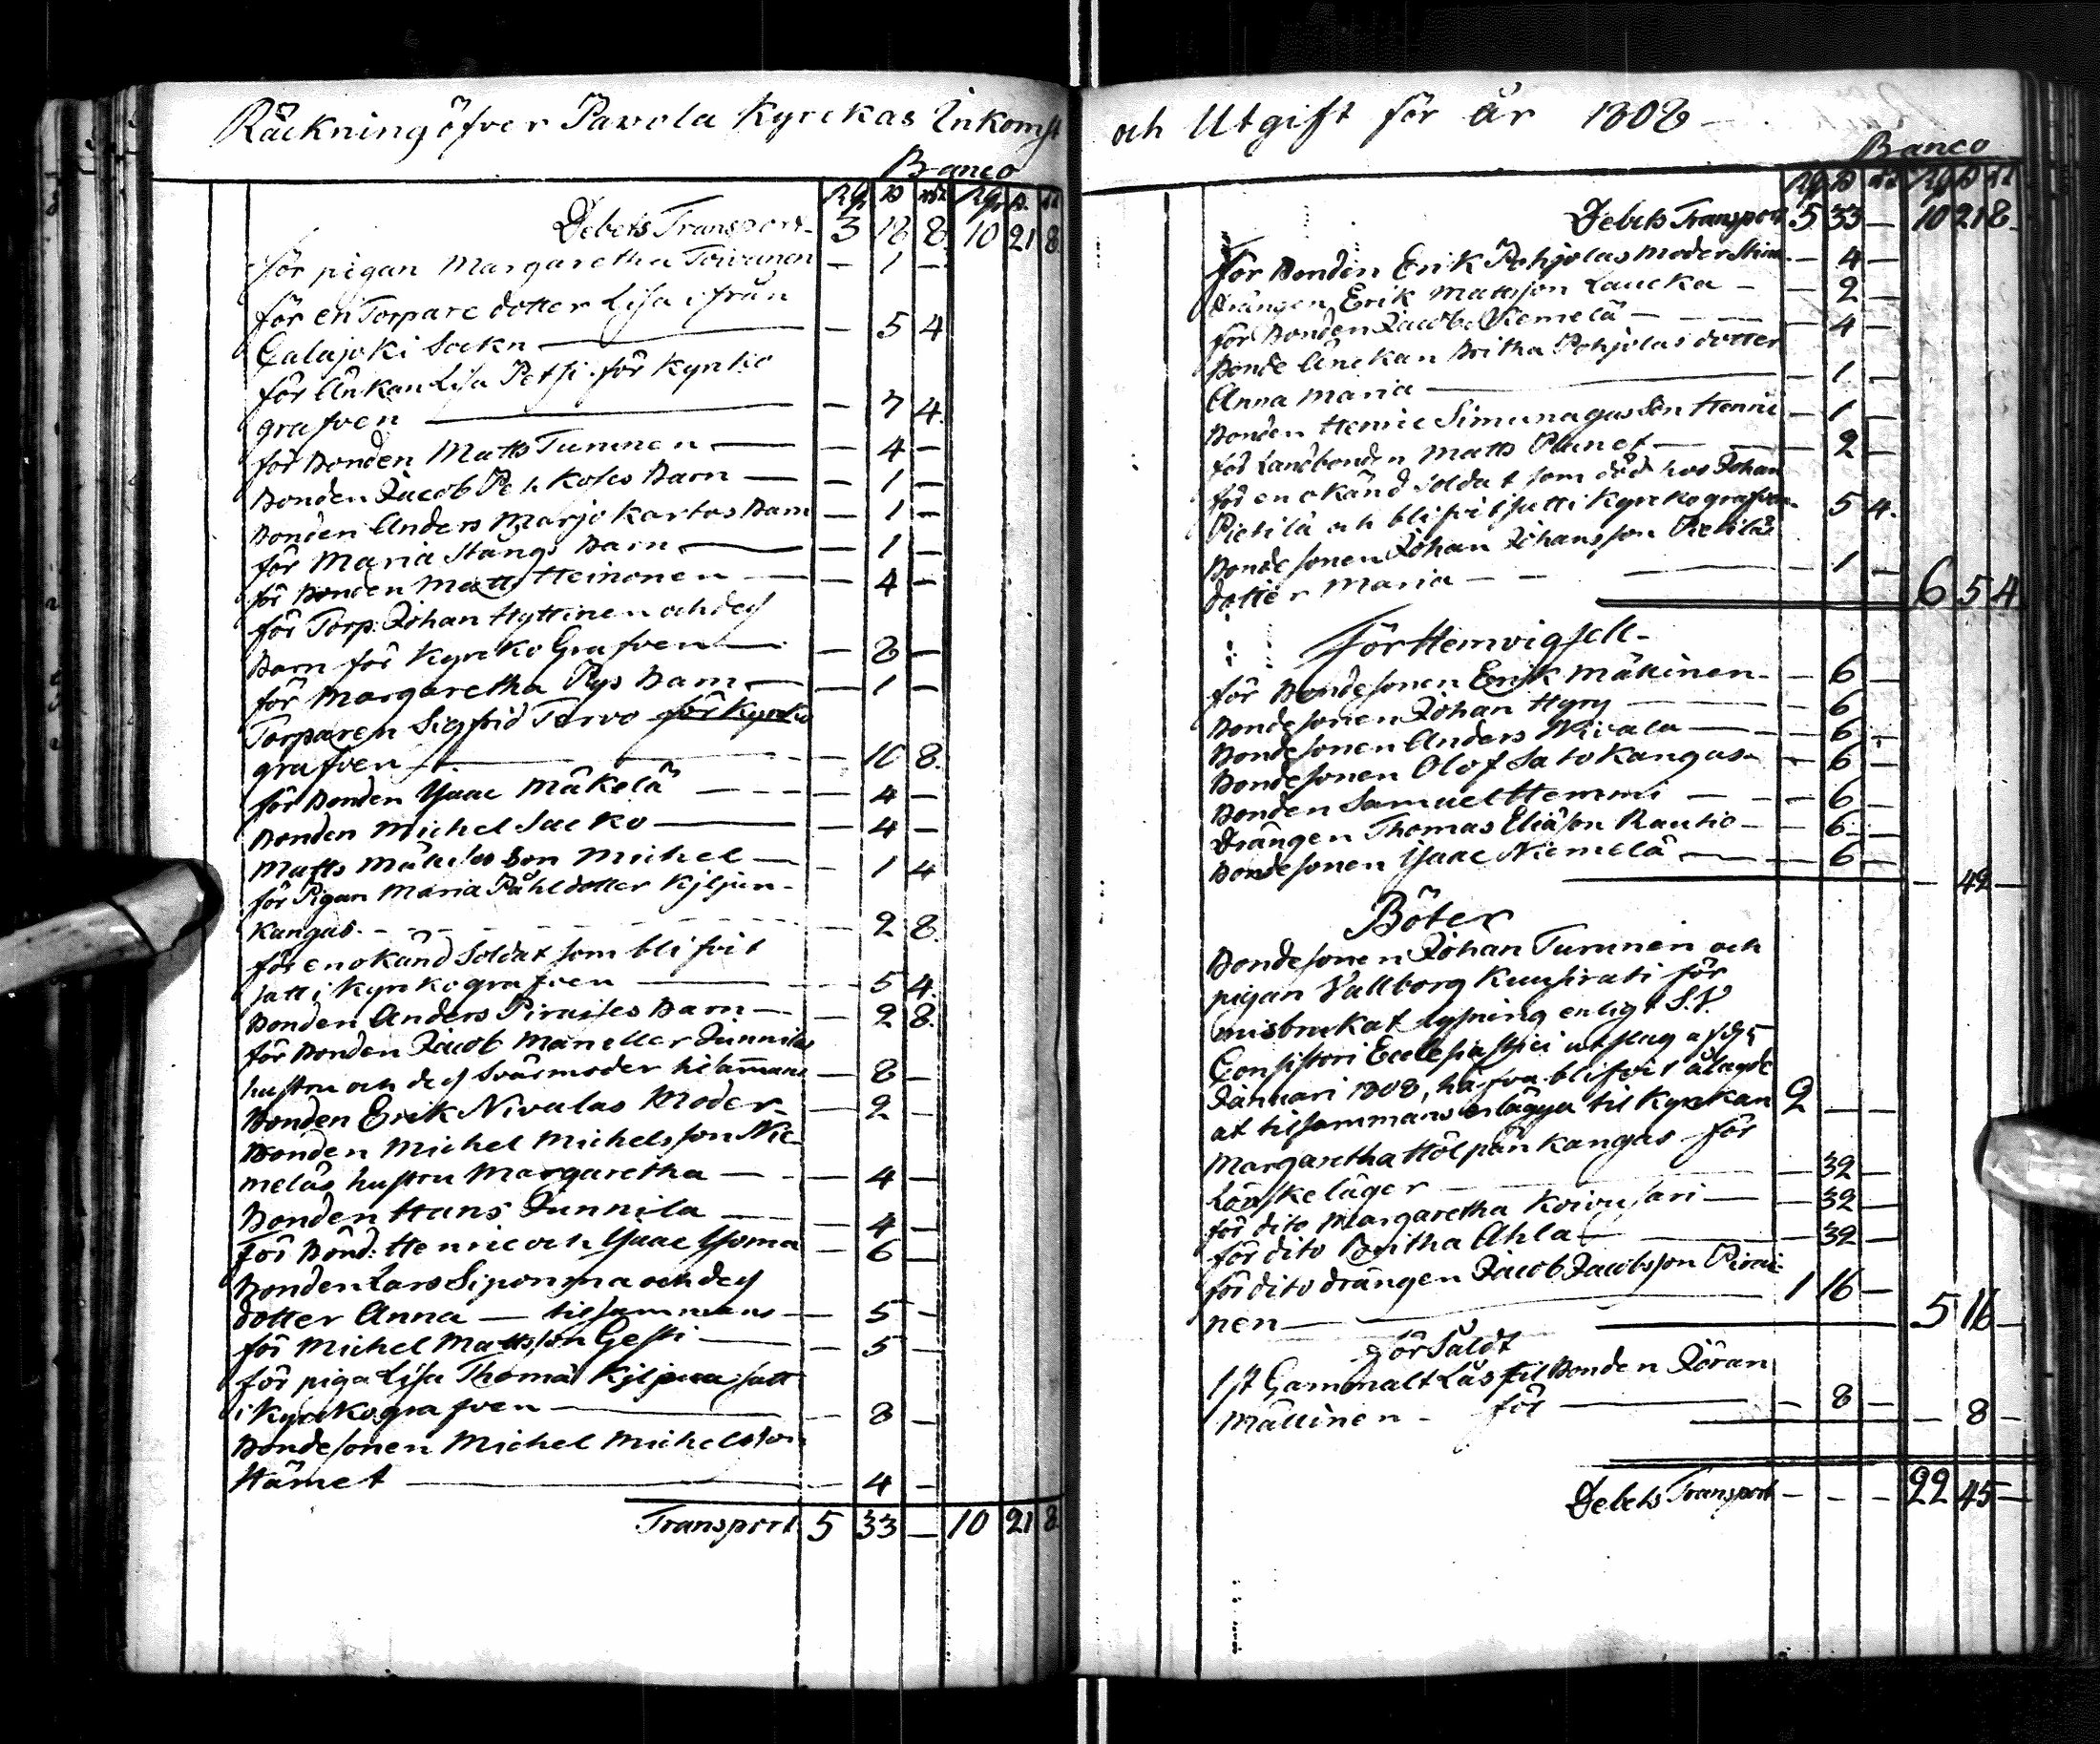 Räckning öfver Pavola Kyrckas Inkomst
Banco
Rg. s. rst. Rg. s. rst.
Debets Transport 3 18 8 10 21 8
för pigan Margaretha Toivanen — 1 —
för en Torpare dotter Lisa ifrån
Calajoki Sockn — 5 4
för Änkan Lisa Petsi för Kyrko
grafven — 7 4
för Bonden Matts Turunen — 4 —
Bonden Jacob Pehkoses Barn — 1 —
Bonden Anders Marjokartos Barn — 1 —
för Maria Stangs Barn — 1 —
för Bonden Matts Heinonen — 4 —
för Torp: Johan Hyttinen och des
Barn för Kyrko Grafven — 8 —
för Margaretha Pys Barn — 1 —
Torparen Sigfrid Tervo för Kyrko
grafven — 10 8
för Bonden Isaac Mäkelä — 4 —
Bonden Michel Sacko — 4 —
Matts Son Michel — 1 4
för Pigan Maria Påhldotter Kiljun-
kangas — 2 8
för en okänd Soldat som blifvit
satt i Kyrkografven — 5 4
Bonden Anders Piraises Barn — 2 8
för Bonden Jacob Junnilas
hustru och des Svärmoder — 8 —
Bonden Erik Nivalas Moder — 2 —
Bonden Michel Michelsson Nie-
meläs hustru Margaretha — 4 —
Bonden Hans Junnila — 4 —
för Bönd: Henric och Isaac Ysoma — 6 —
Bonden Lars Siponma och des
dotter Anna — tilsammans — 5 —
för Michel Mattsson Gesti — 5 —
för piga Lisa Thomäd. Kiljuna satt
i Kyrckografven — 8 —
Bondesonen Michel Michelsson
Hämet — 4 —
Transport 5 33 — 10 21 8
och Utgift för år 1808 —
Banco
Rg. s. rst. Rg. s. rst.
Debets Transport 5 33 — 10 21 8
För Bonden Erik Pohjolas moder Stina — 4 —
Drängen Erik Mattsson Laucka — 2 —
för Bonden Jacob Niemelä — 4 —
Bonde Änckan Britha Pohjolas dotter
Anna Maria — 1 —
Bonden Henric Simunagas Son Henric — 1 —
för Landbonden Matts Planet — 2 —
för en okänd Soldat som död hos Johan
Pietilä och blifvit satt i Kyrckografven — 5 4
Bondesonen Johan Johansson Pietiläs
dotter Maria — 1 —
6 5 4
För Hemvigsell
för Bondesonen Erik Mäkinen — 6 —
Bondesonen Johan Hyry — 6
Bondesonen Anders Nivala — 6 —
Bondesonen Olof Satokangas — 6 —
Bonden Samuel Hemmi — 6 —
Drängen Thomas Eliäson Rautio — 6 —
Bondesonen Isaac Niemelä — 6 —
— 42 —
Böter
Bondesonen Johan Turunen och
pigan Vallborg Kuusirati för
misbrukat lysning enligt S. V.
Consistori Ecclesiastici utslag af d. 5
Januari 1808, hafva blifvit ålagde
at tilsammans erlägga til Kyrckan 2 — —
Margaretha Hölpänkangas för
Lönskeläger — 32 —
för dito Margaretha Koivusari — 32 —
för dito Britha Ahla — 32 —
för dito drängen Jacob Jacobsson Pirai-
nen — 1 16 —
5 16 —
För Såldt
1 st Gammalt Lås til Bonden Jöran
Mäkinen — för — 8 —
— 8 —
Debets Transport — — — 22 45 —